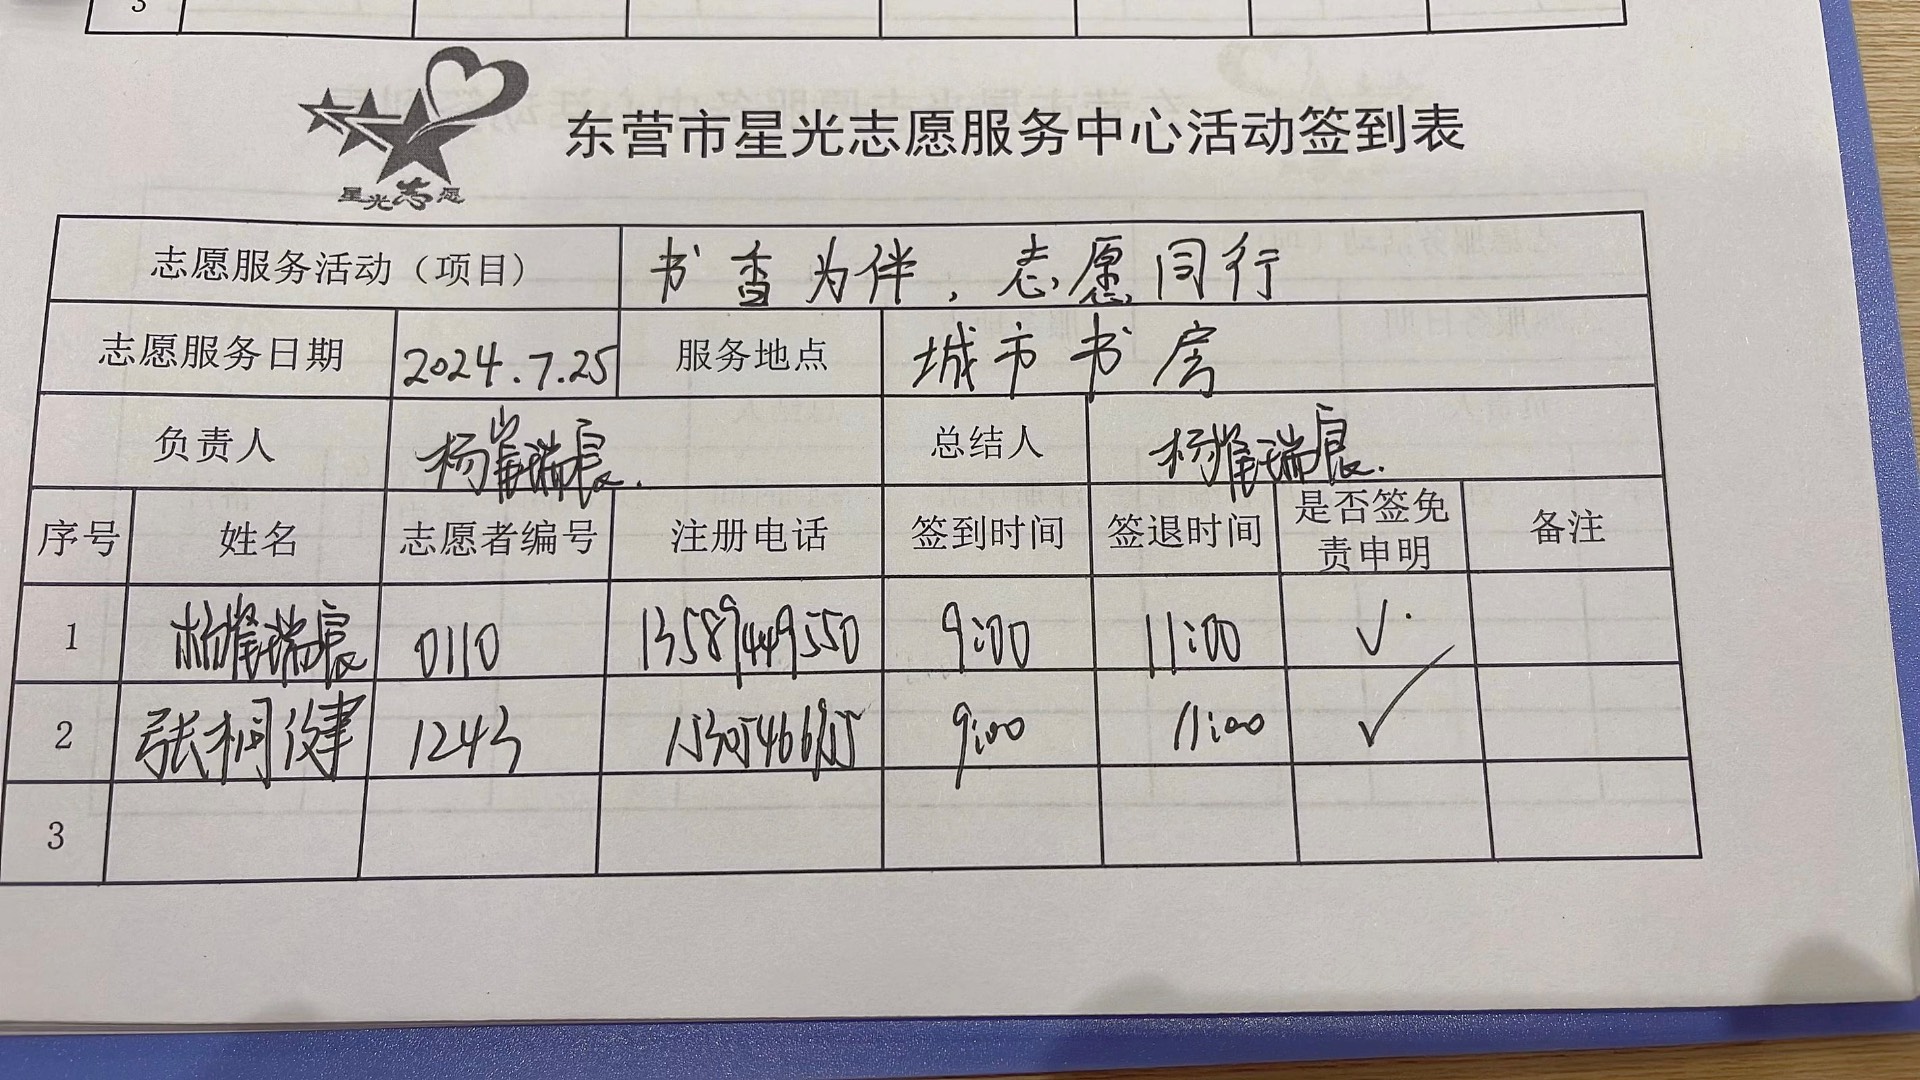 3
星光志愿
东营市星光志愿服务中心活动签到表
志愿服务活动（项目） 书香为伴，志愿同行
志愿服务日期 2024.7.25 服务地点 城市书房
负责人 杨 瑞宸. 总结人 杨 瑞宸.
序号 姓名 志愿者编号 注册电话 签到时间 签退时间 是否签免责申明 备注
1 杨 瑞宸 0110 13589449550 9:00 11:00 √
2 张桐健 1243 9:00 11:00 √
3